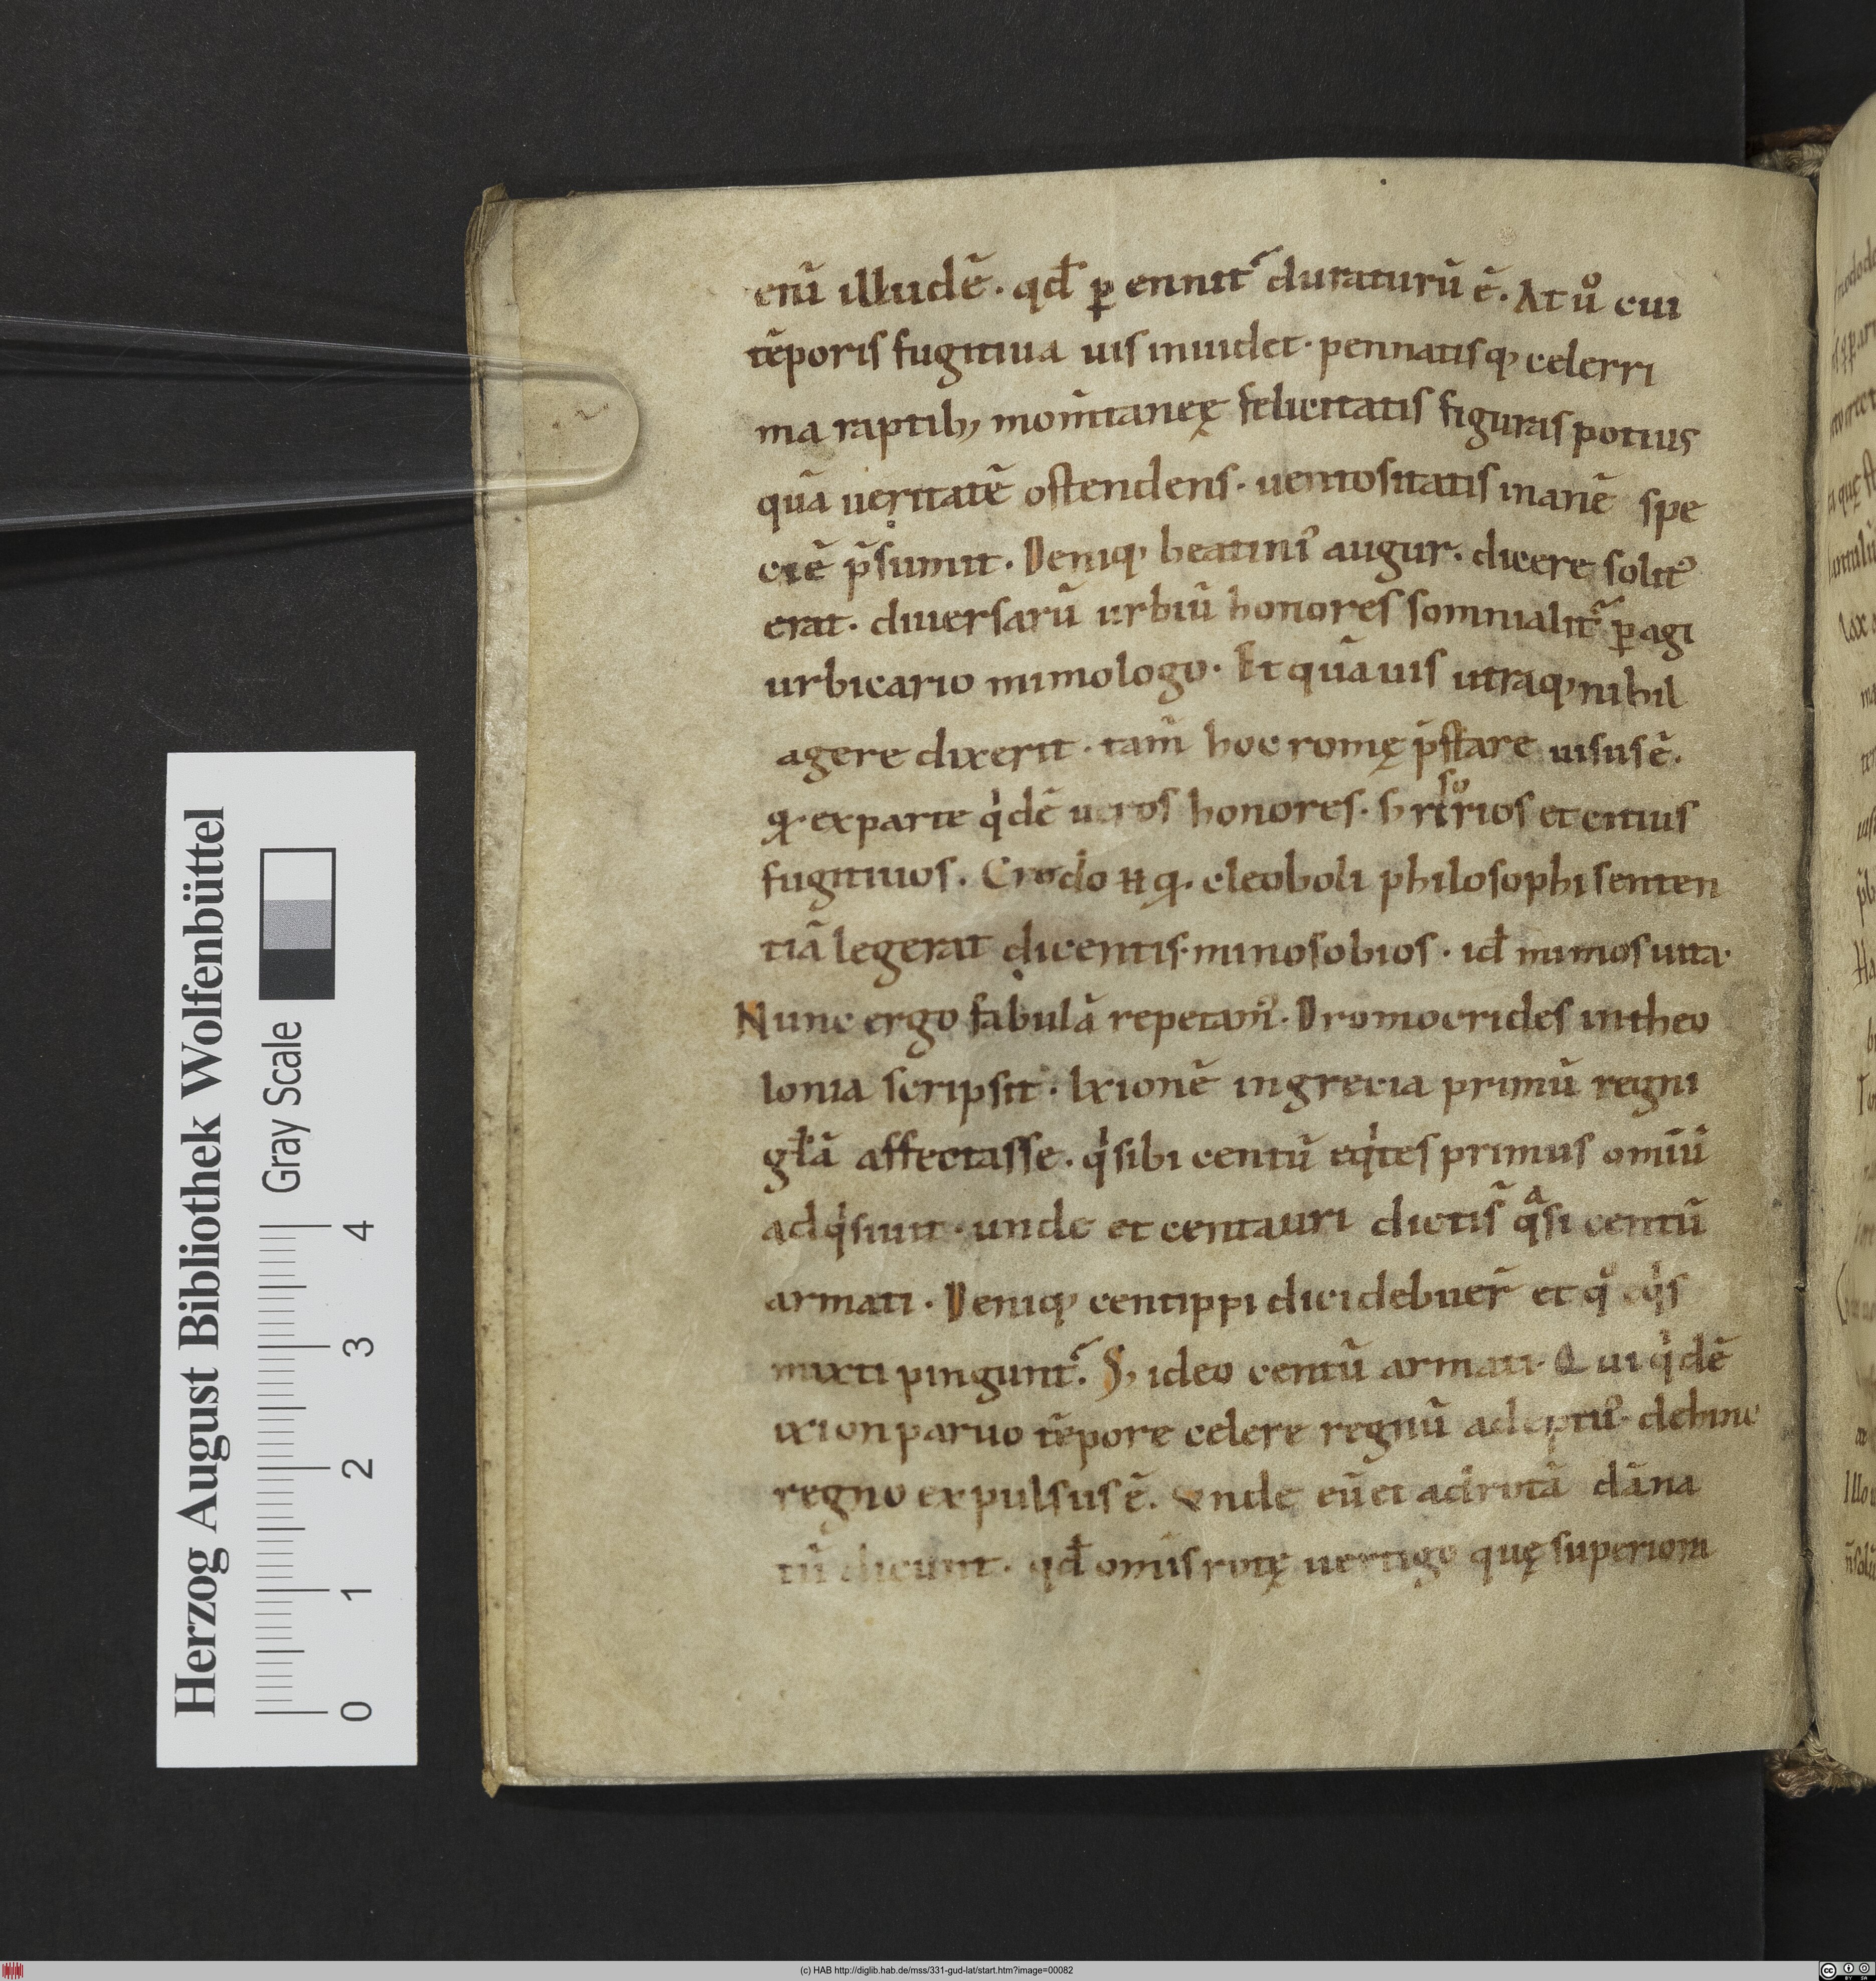 enī illudē . qđ ꝑ ennit᷑ duraturū ē. At uͦ cui
tēporis fugitiua uis inuidet · pennatisq; celerri
ma raptib; mom̄taneę felicitatis figuris potius
quā ueritatē ostendens · uentositatis inanē spe
ciē p̄sumit . Deniq; beatiniꝰ augur . dicere solitꝰ
erat . diuersarū urbiū honores somnialit᷑ ꝑagi
urbicario mimologo . Et quāuis utraq; nihil
agere dixerit . tam̄ hoc romę p̄stare uisus ē.
ex parte qͥdē ueros honores . et citius
fugitiuos . Credo cleoboli philosophi senten
tiā legerat dicentis · minosobios . id mimos uita ·
Nunc ergo fabulā repetam᷒ . Dromocrides in theo
lonia scripsit . Ixionē in grecia primū regni
głā affectasse . qͥ sibi centū eqͥtes primus omīū
adqͥsiuit . unde et centauri dictis̄ qͣsi centū
armati . Deniq; centippi dici debuer̄ et qͦ eqͥs
mixti pingunt᷑ . S; ideo centū armati . Qui qͥdē
ixion paruo tēpore celere regnū adeptuꝰ . dehinc
regno expulsus ē. Vnde eū et ad rotā dāna
tū dicunt . qđ omīs rotę uertigo quę superiora
Herzog August Bibliothek Wolfenbüttel
Gray Scale
0 1 2 3 4
(c) HAB http://diglib.hab.de/mss/331-gud-lat/start.htm?image=00082